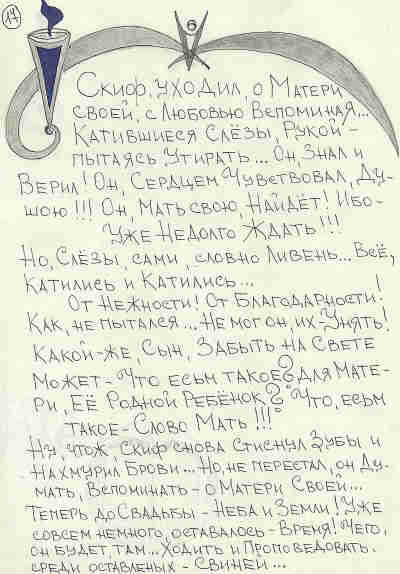 17
Скиф, уходил, о Матери
своей, с Любовью Вспоминая...
Катившиеся Слёзы, Рукой -
пытаясь Утирать... Он, Знал и
Верил! Он, Сердцем Чувствовал, Ду-
шою!!! Он, Мать свою, Найдёт! Ибо -
Уже Недолго Ждать!!!
Но, Слёзы, сами, словно Ливень... Всё,
катились и Катились...
От Нежности! От Благодарности!
Как, не пытался... Не мог он, их - Унять!
Какой-же, Сын, Забыть на Свете
Может - "Что есьм такое? Для Мате-
ри, Её Родной Ребёнок?" "Что, есьм
такое - Слово Мать!!!"
Ну чтож, Скиф снова Стиснул Зубы и
Нахмурил Брови... Но, не перестал, он Ду-
мать, Вспоминать - о Матери Своей...
Теперь до Свадьбы - Неба и Земли! Уже
совсем немного, оставалось - Время! Чего,
он будет, там... Ходить и Проповедовать.
среди оставленых - Свиней...